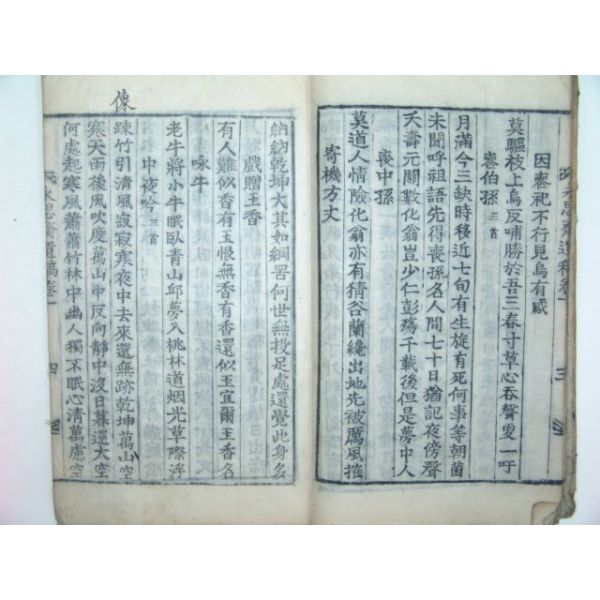 永思齋遺稿卷一
三
因喪祀不行見烏有感
莫驅枝上烏反哺勝於吾三春寸草心吞聲更一呼
喪伯孫三首
月滿今三缺時移近七旬有生旋有死何事等朝菌
未聞呼祖語先得喪孫名人間七十日猶記夜傍聲
夭壽元關數化翁豈少仁彭殤千載後但是夢中人
喪中孫
莫道人情險化翁亦有猜谷蘭纔出地先被厲風摧
寄機方丈
納納乾坤大其如綱罟何世無投足處還覺此身多
戲贈玉香
有人難似香有玉恨無香有香還似玉宜爾玉香名
咏牛
老牛將小牛眠臥青山邱夢入桃林道烟光草際浮
中夜吟三首
像
疎竹引清風寂寂寒夜中去來還無跡乾坤萬山空
寒天雨後風吹度萬山中反向靜中沒日暮還大空
何處起寒風蕭蕭竹林中幽人獨不眠心清萬慮空
永思齋遺稿卷一
四